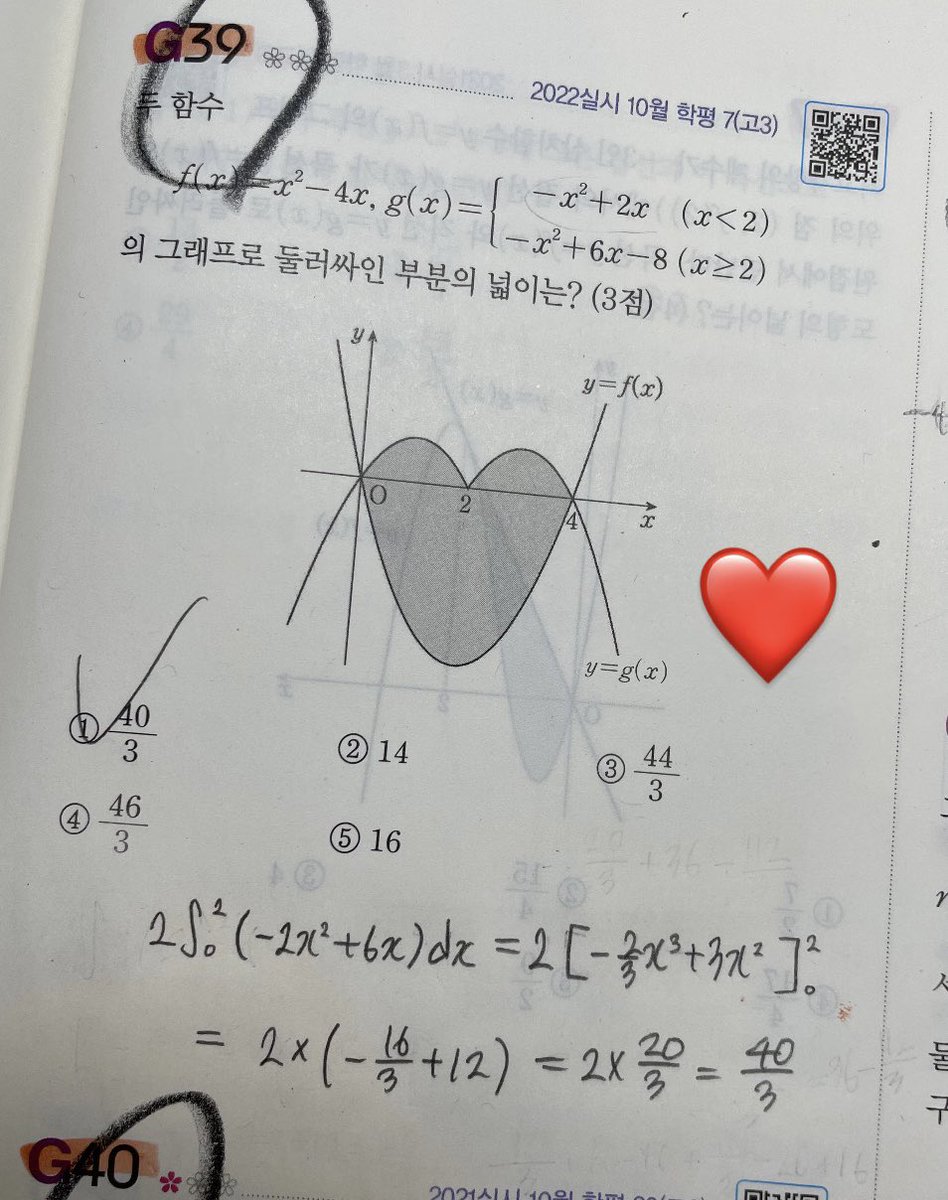 G39
2022실시 10월 학평 7(고3)
두 함수
f(x)=x²-4x, g(x)={ -x²+2x (x<2)
-x²+6x-8 (x≥2)
의 그래프로 둘러싸인 부분의 넓이는? (3점)
y
y=f(x)
O
2
4
x
y=g(x)
① 40/3
② 14
③ 44/3
④ 46/3
⑤ 16
2∫₀² (-2x²+6x)dx = 2[-2/3x³+3x²]₀²
= 2×(-16/3+12) = 2×20/3 = 40/3
G40